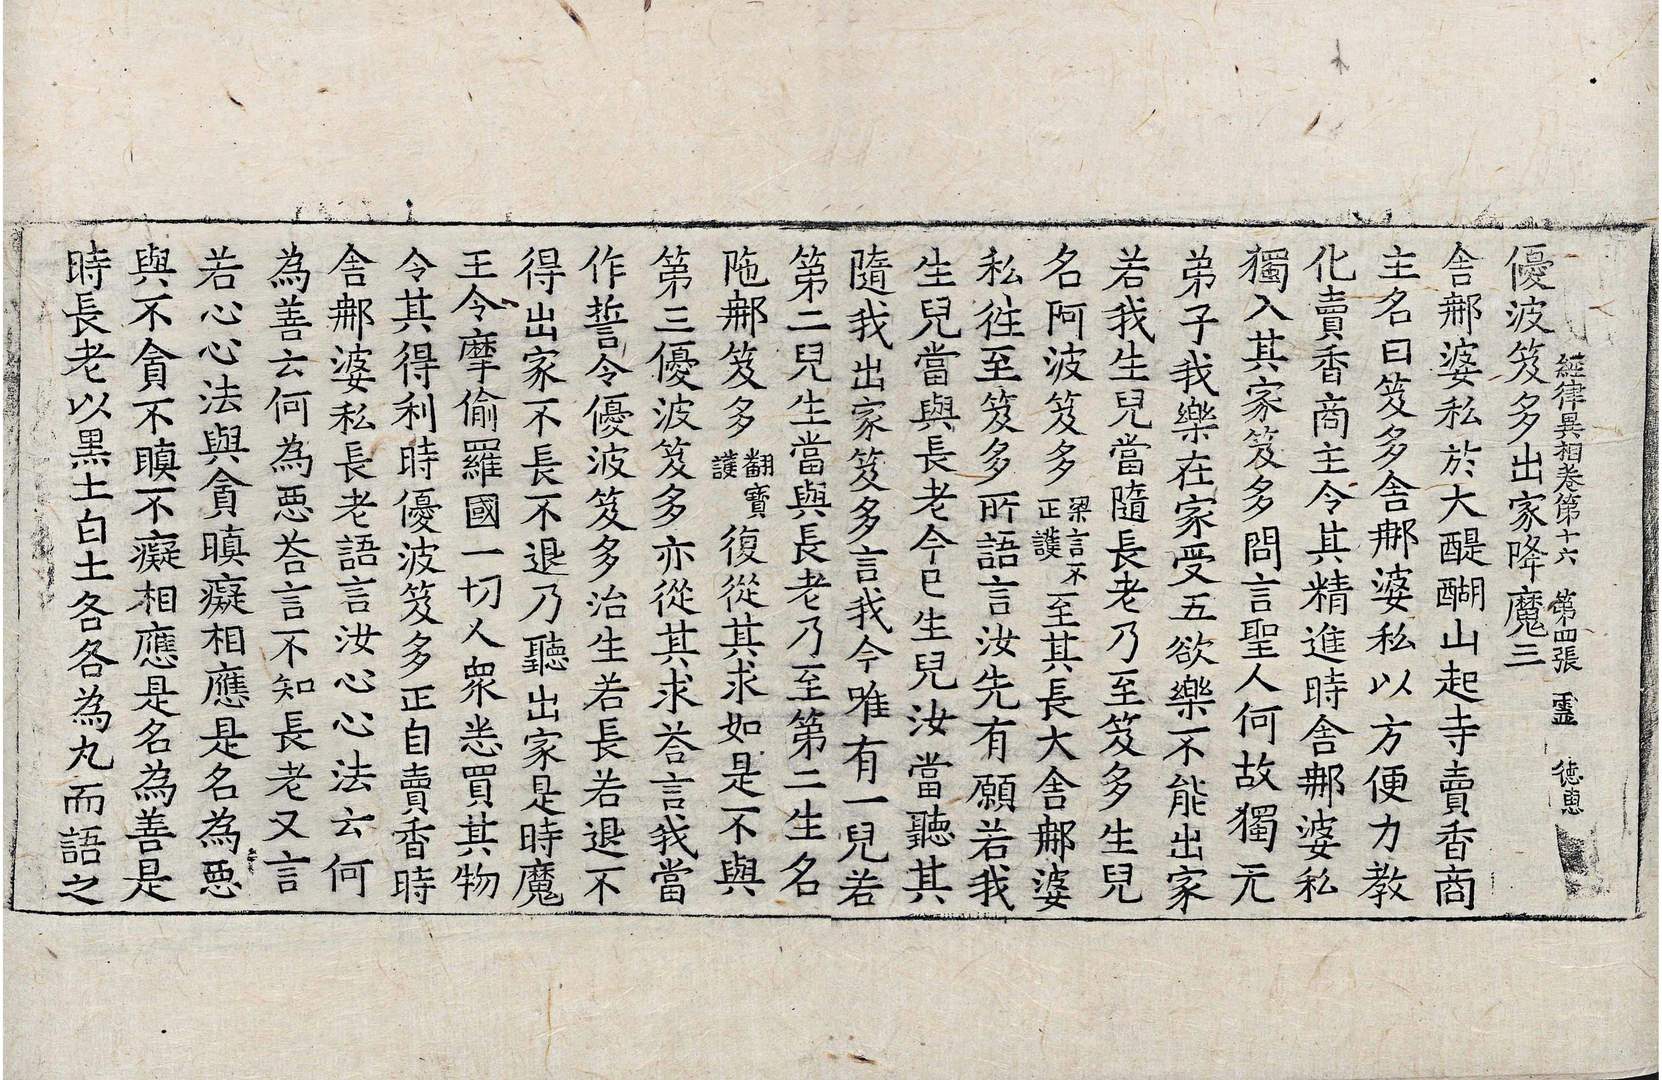 經律異相卷第十六 第四張 靈 德惠
優波笈多出家降魔三
舍𨚗婆私於大醍醐山起寺賣香商
主名曰笈多舍𨚗婆私以方便力教
化賣香商主令其精進時舍𨚗婆私
獨入其家笈多問言聖人何故獨无
弟子我樂在家受五欲樂不能出家
若我生兒當隨長老乃至笈多生兒
名阿波笈多梁言不正護至其長大舍𨚗婆
私往至笈多所語言汝先有願若我
生兒當與長老今已生兒汝當聽其
隨我出家笈多言我今唯有一兒若
第二兒生當與長老乃至第二生名
陁𨚗笈多翻寶護復從其求如是不與
第三優波笈多亦從其求荅言我當
作誓令優波笈多治生若長若退不
得出家不長不退乃聽出家是時魔
王令摩偷羅國一切人衆悉買其物
令其得利時優波笈多正自賣香時
舍𨚗婆私長老語言汝心心法云何
為善云何為惡荅言不知長老又言
若心心法與貪瞋癡相應是名為惡
與不貪不瞋不癡相應是名為善是
時長老以黑土白土各各為丸而語之